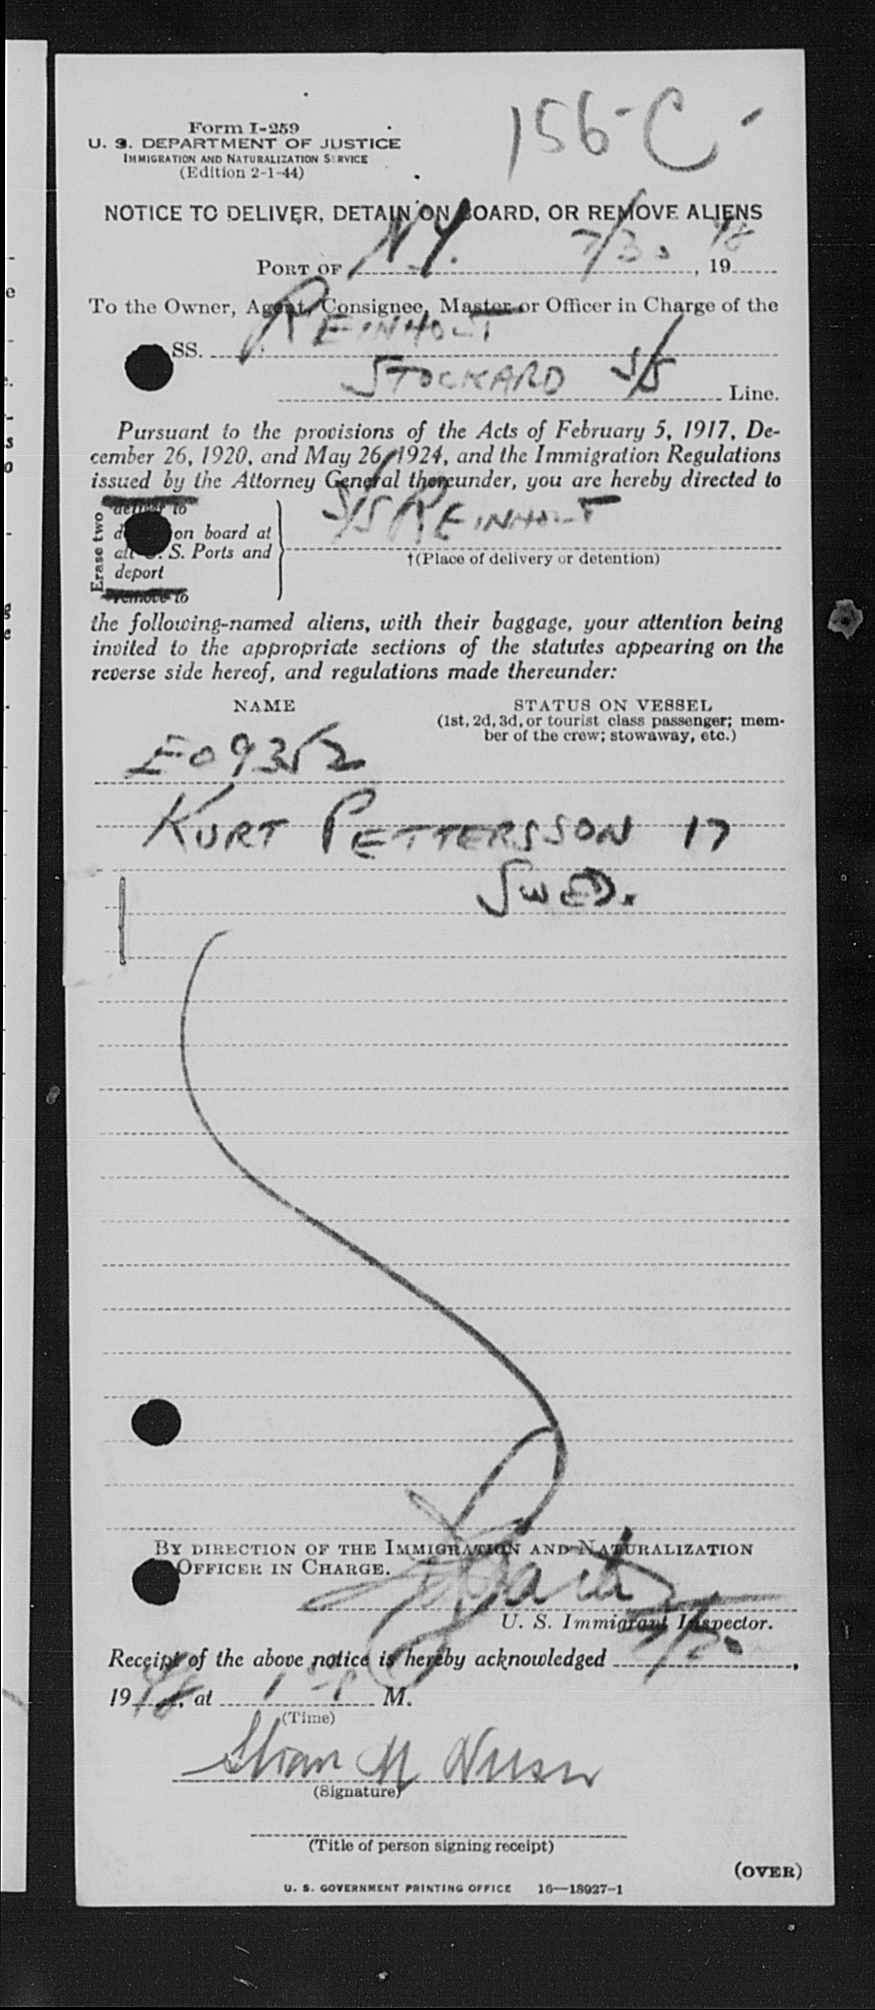 156-C
Form I-259
U. S. DEPARTMENT OF JUSTICE
IMMIGRATION AND NATURALIZATION SERVICE
(Edition 2-1-44)
NOTICE TO DELIVER, DETAIN ON BOARD, OR REMOVE ALIENS
PORT OF N.Y. 7/30, 1948
To the Owner, Agent, Consignee, Master or Officer in Charge of the
SS. REINHOLT
STOCKARD S/S Line.
Pursuant to the provisions of the Acts of February 5, 1917, De-
cember 26, 1920, and May 26, 1924, and the Immigration Regulations
issued by the Attorney General thereunder, you are hereby directed to
deliver to
S/S REINHOLT
Erase two
on board at
S. Ports and
†(Place of delivery or detention)
deport
remove to
the following-named aliens, with their baggage, your attention being
invited to the appropriate sections of the statutes appearing on the
reverse side hereof, and regulations made thereunder:
NAME STATUS ON VESSEL
(1st, 2d, 3d, or tourist class passenger; mem-
ber of the crew; stowaway, etc.)
E09352
KURT PETTERSSON 17
SWED.
BY DIRECTION OF THE IMMIGRATION AND NATURALIZATION
OFFICER IN CHARGE.
U. S. Immigrant Inspector.
Receipt of the above notice is hereby acknowledged
1948, at M.
(Time)
(Signature)
(Title of person signing receipt)
(OVER)
U. S. GOVERNMENT PRINTING OFFICE 16—18927-1